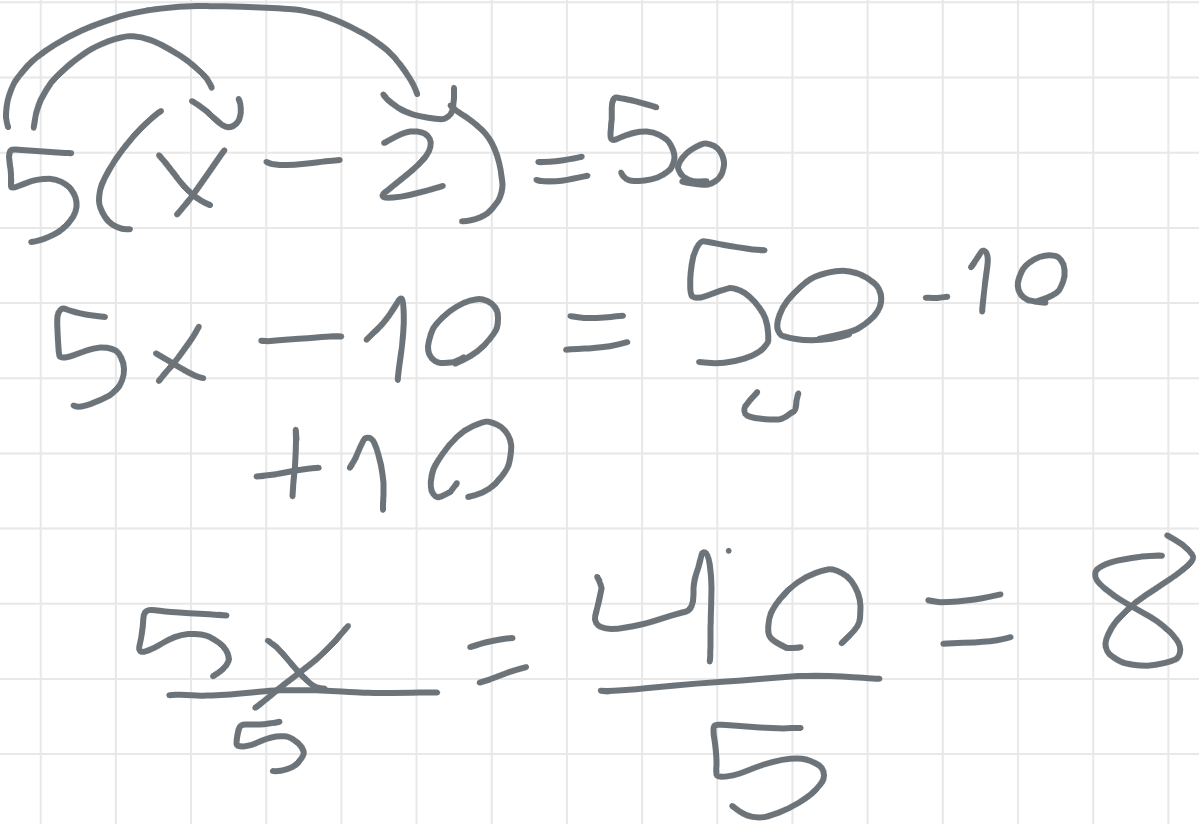 5(x - 2) = 50
5x - 10 = 50 - 10
+10
5x/5 = 40/5 = 8